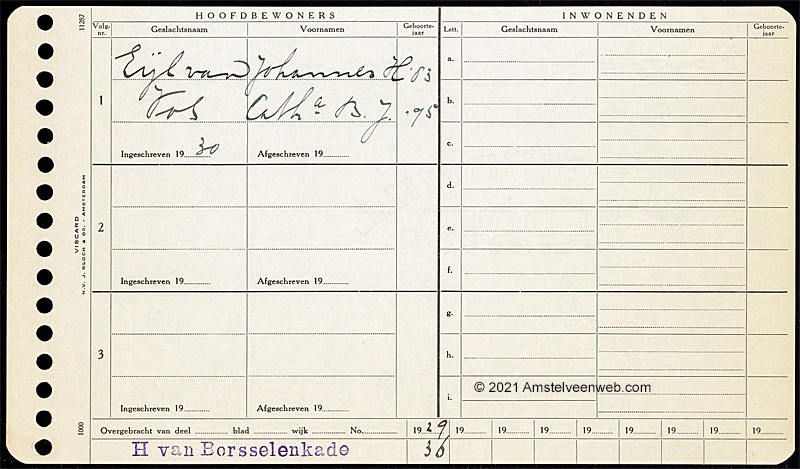 HOOFDBEWONERS
INWONENDEN
Volg-
nr.
Geslachtsnaam
Voornamen
Geboorte-
jaar
Lett.
Geslachtsnaam
Voornamen
Geboorte-
jaar
11287
1
Eijl van Johannes H '83
Vos Cath.a B. J. '95
Ingeschreven 19 30
Afgeschreven 19
a.
b.
c.
2
Ingeschreven 19
Afgeschreven 19
d.
e.
f.
VISCARD
N.V. J. BLOCH & CO. - AMSTERDAM
3
Ingeschreven 19
Afgeschreven 19
g.
h.
i.
© 2021 Amstelveenweb.com
1000
Overgebracht van deel blad wijk No.
19 29 19 19 19 19 19 19 19 19
H van Borsselenkade
36